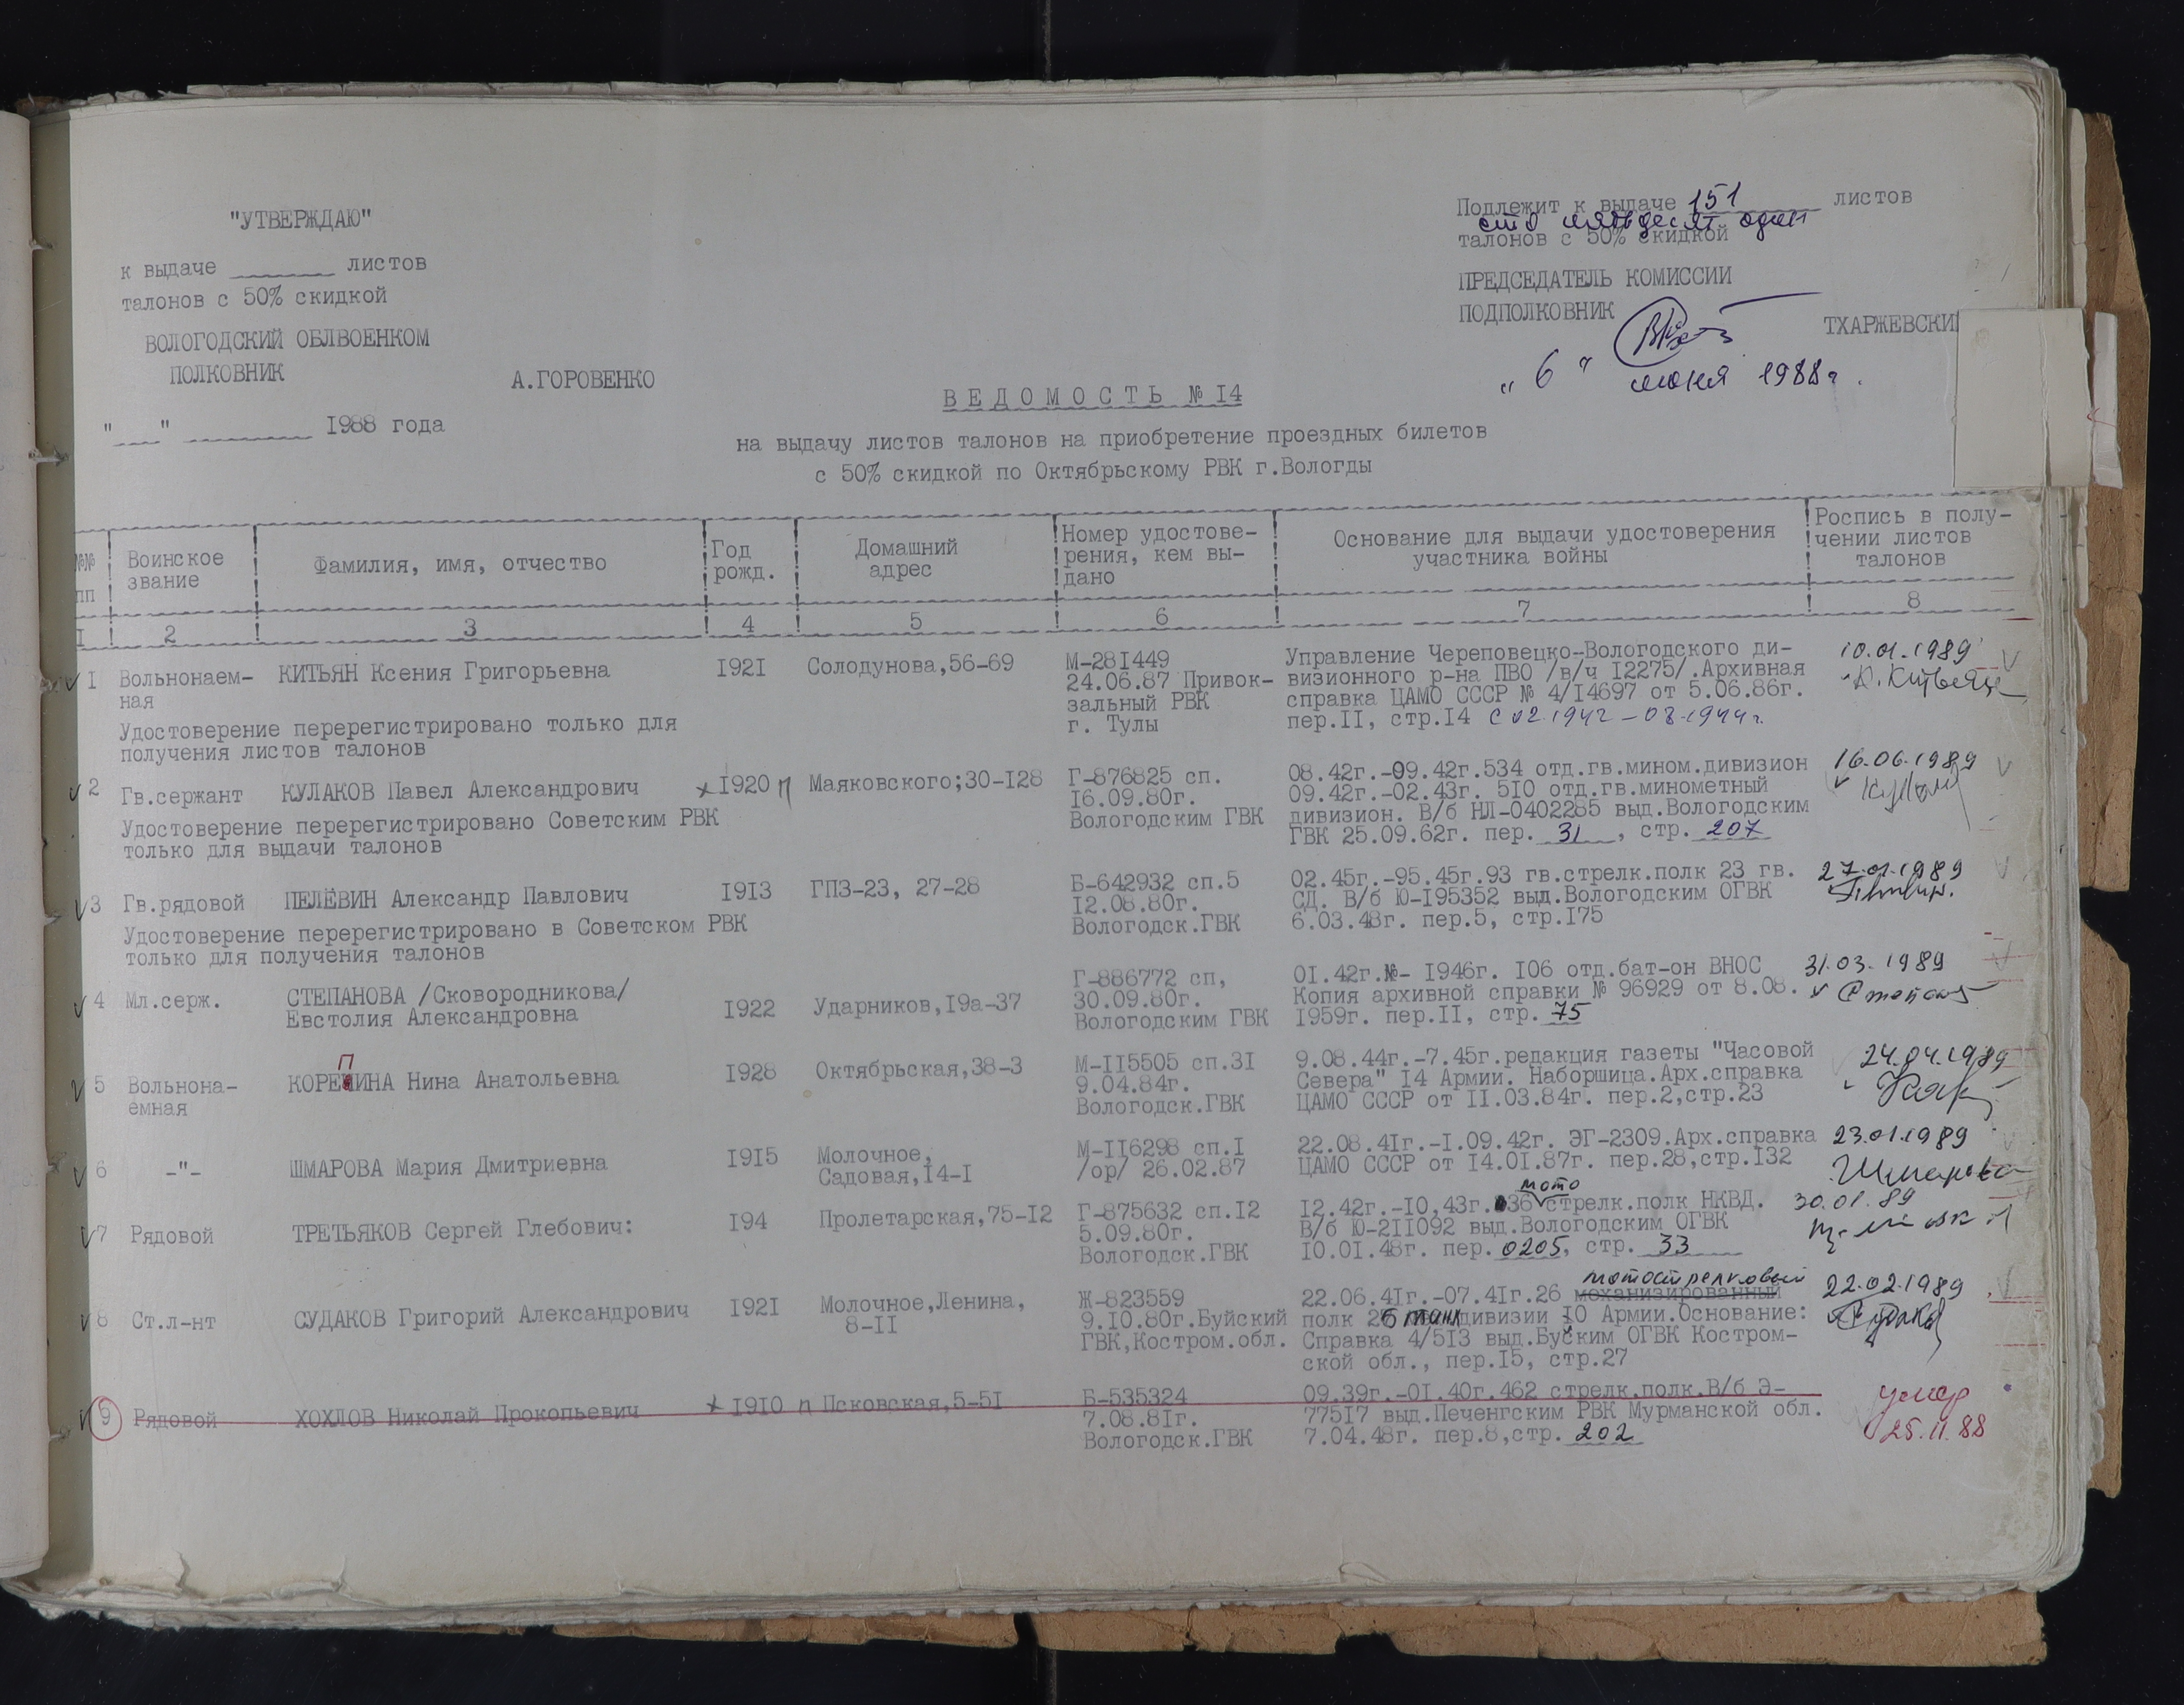 "УТВЕРЖДАЮ"
к выдаче ________ листов
талонов с 50% скидкой
ВОЛОГОДСКИЙ ОБЛВОЕНКОМ
ПОЛКОВНИК
А.ГОРОВЕНКО
"___" __________ 1988 года
Подлежит к выдаче 151 листов
сто пятьдесят один
талонов с 50% скидкой
ПРЕДСЕДАТЕЛЬ КОМИССИИ
ПОДПОЛКОВНИК
ТХАРЖЕВСКИ
"6" июня 1988г.
ВЕДОМОСТЬ № I4
на выдачу листов талонов на приобретение проездных билетов
с 50% скидкой по Октябрьскому РВК г.Вологды
№№ пп
Воинское звание
Фамилия, имя, отчество
Год рожд.
Домашний адрес
Номер удостове-
рения, кем вы-
дано
Основание для выдачи удостоверения
участника войны
Роспись в полу-
чении листов
талонов
I 2 3 4 5 6 7 8
I Вольнонаем-
ная
КИТЬЯН Ксения Григорьевна
I92I
Солодунова,56-69
М-28I449
24.06.87 Привок-
зальный РВК
г. Тулы
Управление Череповецко-Вологодского ди-
визионного р-на ПВО /в/ч I2275/.Архивная
справка ЦАМО СССР № 4/I4697 от 5.06.86г.
пер.II, стр.I4 с 02.1942-08.1944г.
10.01.1989
Удостоверение перерегистрировано только для
получения листов талонов
2 Гв.сержант
КУЛАКОВ Павел Александрович
I920 п
Маяковского;30-I28
Г-876825 сп.
I6.09.80г.
Вологодским ГВК
08.42г.-09.42г.534 отд.гв.мином.дивизион
09.42г.-02.43г. 5I0 отд.гв.минометный
дивизион. В/б НЛ-0402285 выд.Вологодским
ГВК 25.09.62г. пер. 31 , стр. 207
16.06.1989
Удостоверение перерегистрировано Советским РВК
только для выдачи талонов
3 Гв.рядовой
ПЕЛЁВИН Александр Павлович
I9I3
ГПЗ-23, 27-28
Б-642932 сп.5
I2.08.80г.
Вологодск.ГВК
02.45г.-95.45г.93 гв.стрелк.полк 23 гв.
СД. В/б Ю-I95352 выд.Вологодским ОГВК
6.03.48г. пер.5, стр.I75
27.01.1989
Удостоверение перерегистрировано в Советском РВК
только для получения талонов
4 Мл.серж.
СТЕПАНОВА /Сковородникова/
Евстолия Александровна
I922
Ударников,I9а-37
Г-886772 сп,
30.09.80г.
Вологодским ГВК
0I.42г.№- I946г. I06 отд.бат-он ВНОС
Копия архивной справки № 96929 от 8.08.
I959г. пер.II, стр. 75
31.03.1989
5 Вольнона-
емная
КОРЕПИНА Нина Анатольевна
I928
Октябрьская,38-3
М-II5505 сп.3I
9.04.84г.
Вологодск.ГВК
9.08.44г.-7.45г.редакция газеты "Часовой
Севера" I4 Армии. Наборщица.Арх.справка
ЦАМО СССР от II.03.84г. пер.2,стр.23
24.04.1989
6 -"-
ШМАРОВА Мария Дмитриевна
I9I5
Молочное,
Садовая,I4-I
М-II6298 сп.I
/ор/ 26.02.87
22.08.4Iг.-I.09.42г. ЭГ-2309.Арх.справка
ЦАМО СССР от I4.0I.87г. пер.28,стр.I32
23.01.1989
Шмарова
7 Рядовой
ТРЕТЬЯКОВ Сергей Глебович:
I94
Пролетарская,75-I2
Г-875632 сп.I2
5.09.80г.
Вологодск.ГВК
мото
I2.42г.-I0,43г. 36 стрелк.полк НКВД.
В/б Ю-2II092 выд.Вологодским ОГВК
I0.0I.48г. пер. 0205, стр. 33
30.01.89
8 Ст.л-нт
СУДАКОВ Григорий Александрович
I92I
Молочное,Ленина,
8-II
Ж-823559
9.I0.80г.Буйский
ГВК,Костром.обл.
мотострелковый
22.06.4Iг.-07.4Iг.26 механизированный
полк 26 танк дивизии I0 Армии.Основание:
Справка 4/5I3 выд.Буским ОГВК Костром-
ской обл., пер.I5, стр.27
22.02.1989
9 Рядовой
ХОХЛОВ Николай Прокопьевич
I9I0 п
Псковская,5-5I
Б-535324
7.08.8Iг.
Вологодск.ГВК
09.39г.-0I.40г.462 стрелк.полк.В/б Э-
775I7 выд.Печенгским РВК Мурманской обл.
7.04.48г. пер.8,стр. 202
умер
25.11.88